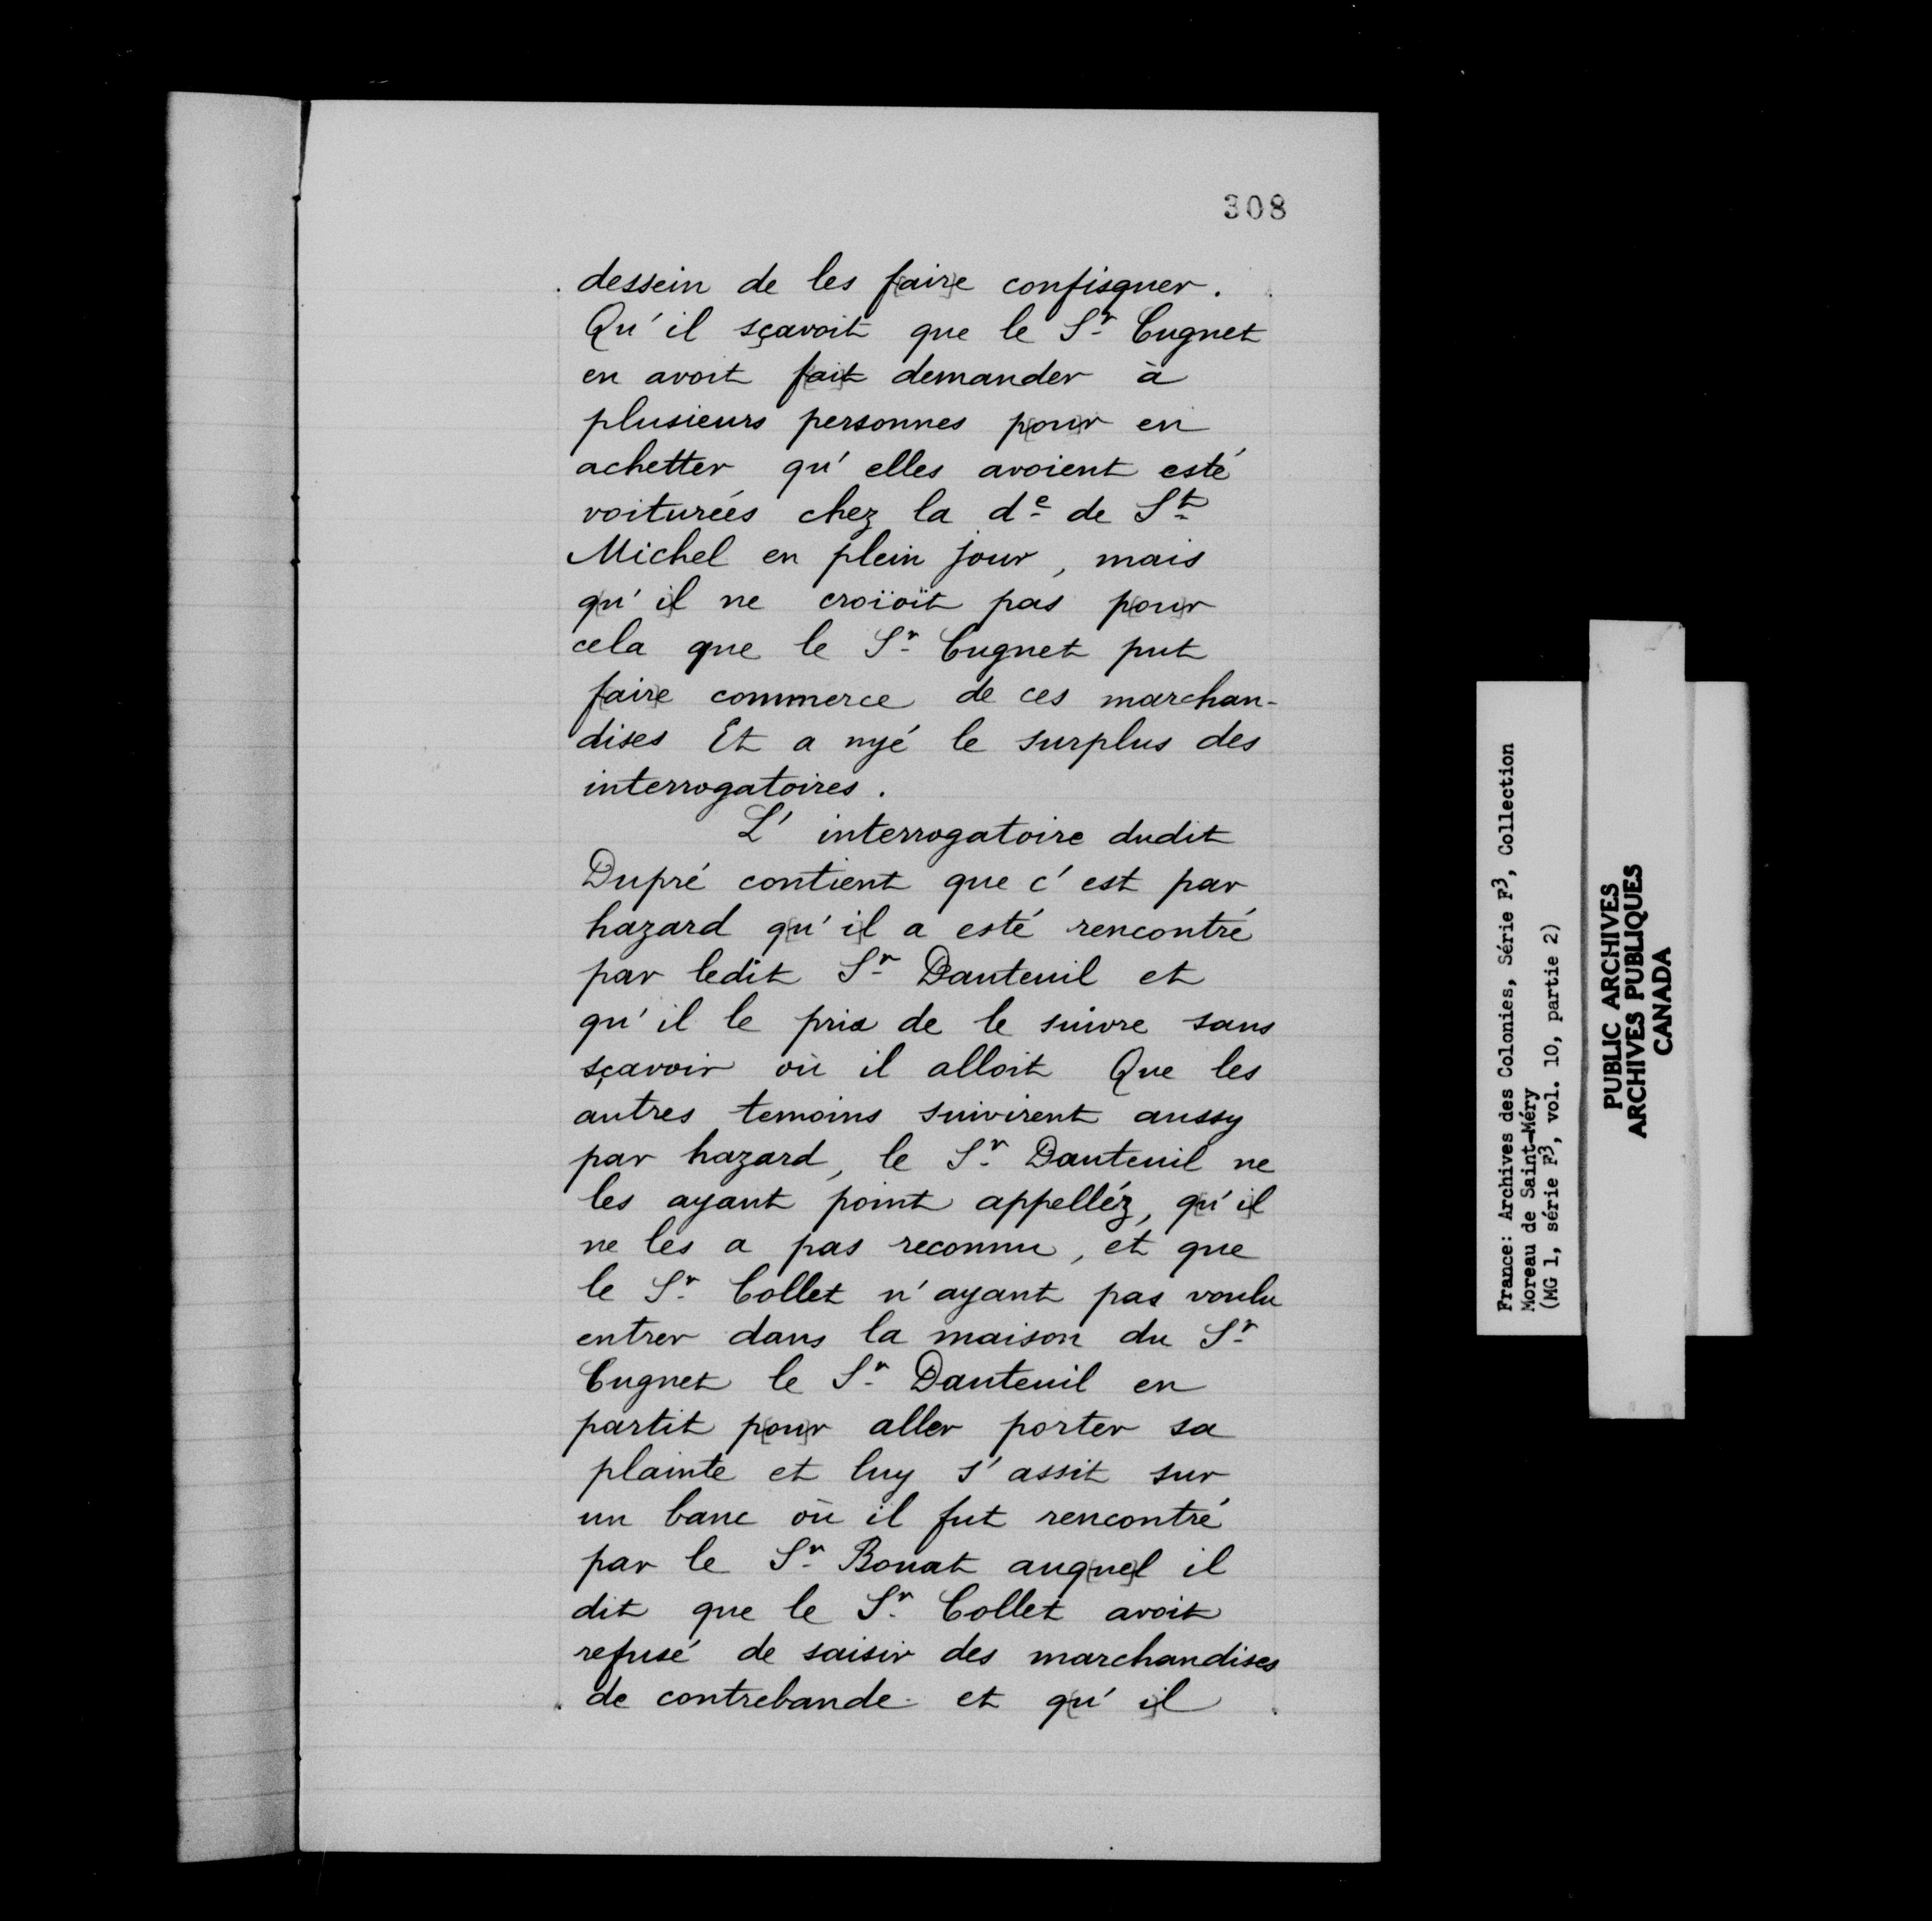 308
dessein de les f[air]e confisquer.
Qu'il sçavoit que le Sr Cugnet
en avoit f[ai]t demander à
plusieurs personnes p[ou]r en
achetter qu'elles avoient esté
voiturées chez la de de St
Michel en plein jour, mais
q[u'i]l ne croïoit pas p[ou]r
cela que le Sr Cugnet put
f[air]e commerce de ces marchan-
dises Et a nyé le surplus des
interrogatoires.
L'interrogatoire dudit
Dupré contient que c'est par
hazard q[u'i]l a esté rencontré
par ledit Sr Dauteuil et
qu'il le pria de le suivre sans
sçavoir où il alloit Que les
autres temoins suivirent aussy
par hazard, le Sr Dauteuil ne
les ayant point appelléz, q[u'i]l
ne les a pas reconnu, et que
le Sr Collet n'ayant pas voulu
entrer dans la maison du Sr
Cugnet le Sr Dauteuil en
partit p[ou]r aller porter sa
plainte et luy s'assit sur
un banc où il fut rencontré
par le Sr Bonat auq[ue]l il
dit que le Sr Collet avoit
refusé de saisir des marchandises
de contrebande et q[u'i]l
France: Archives des Colonies, Série F3, Collection
Moreau de Saint-Méry
(MG 1, série F3, vol. 10, partie 2)
PUBLIC ARCHIVES
ARCHIVES PUBLIQUES
CANADA